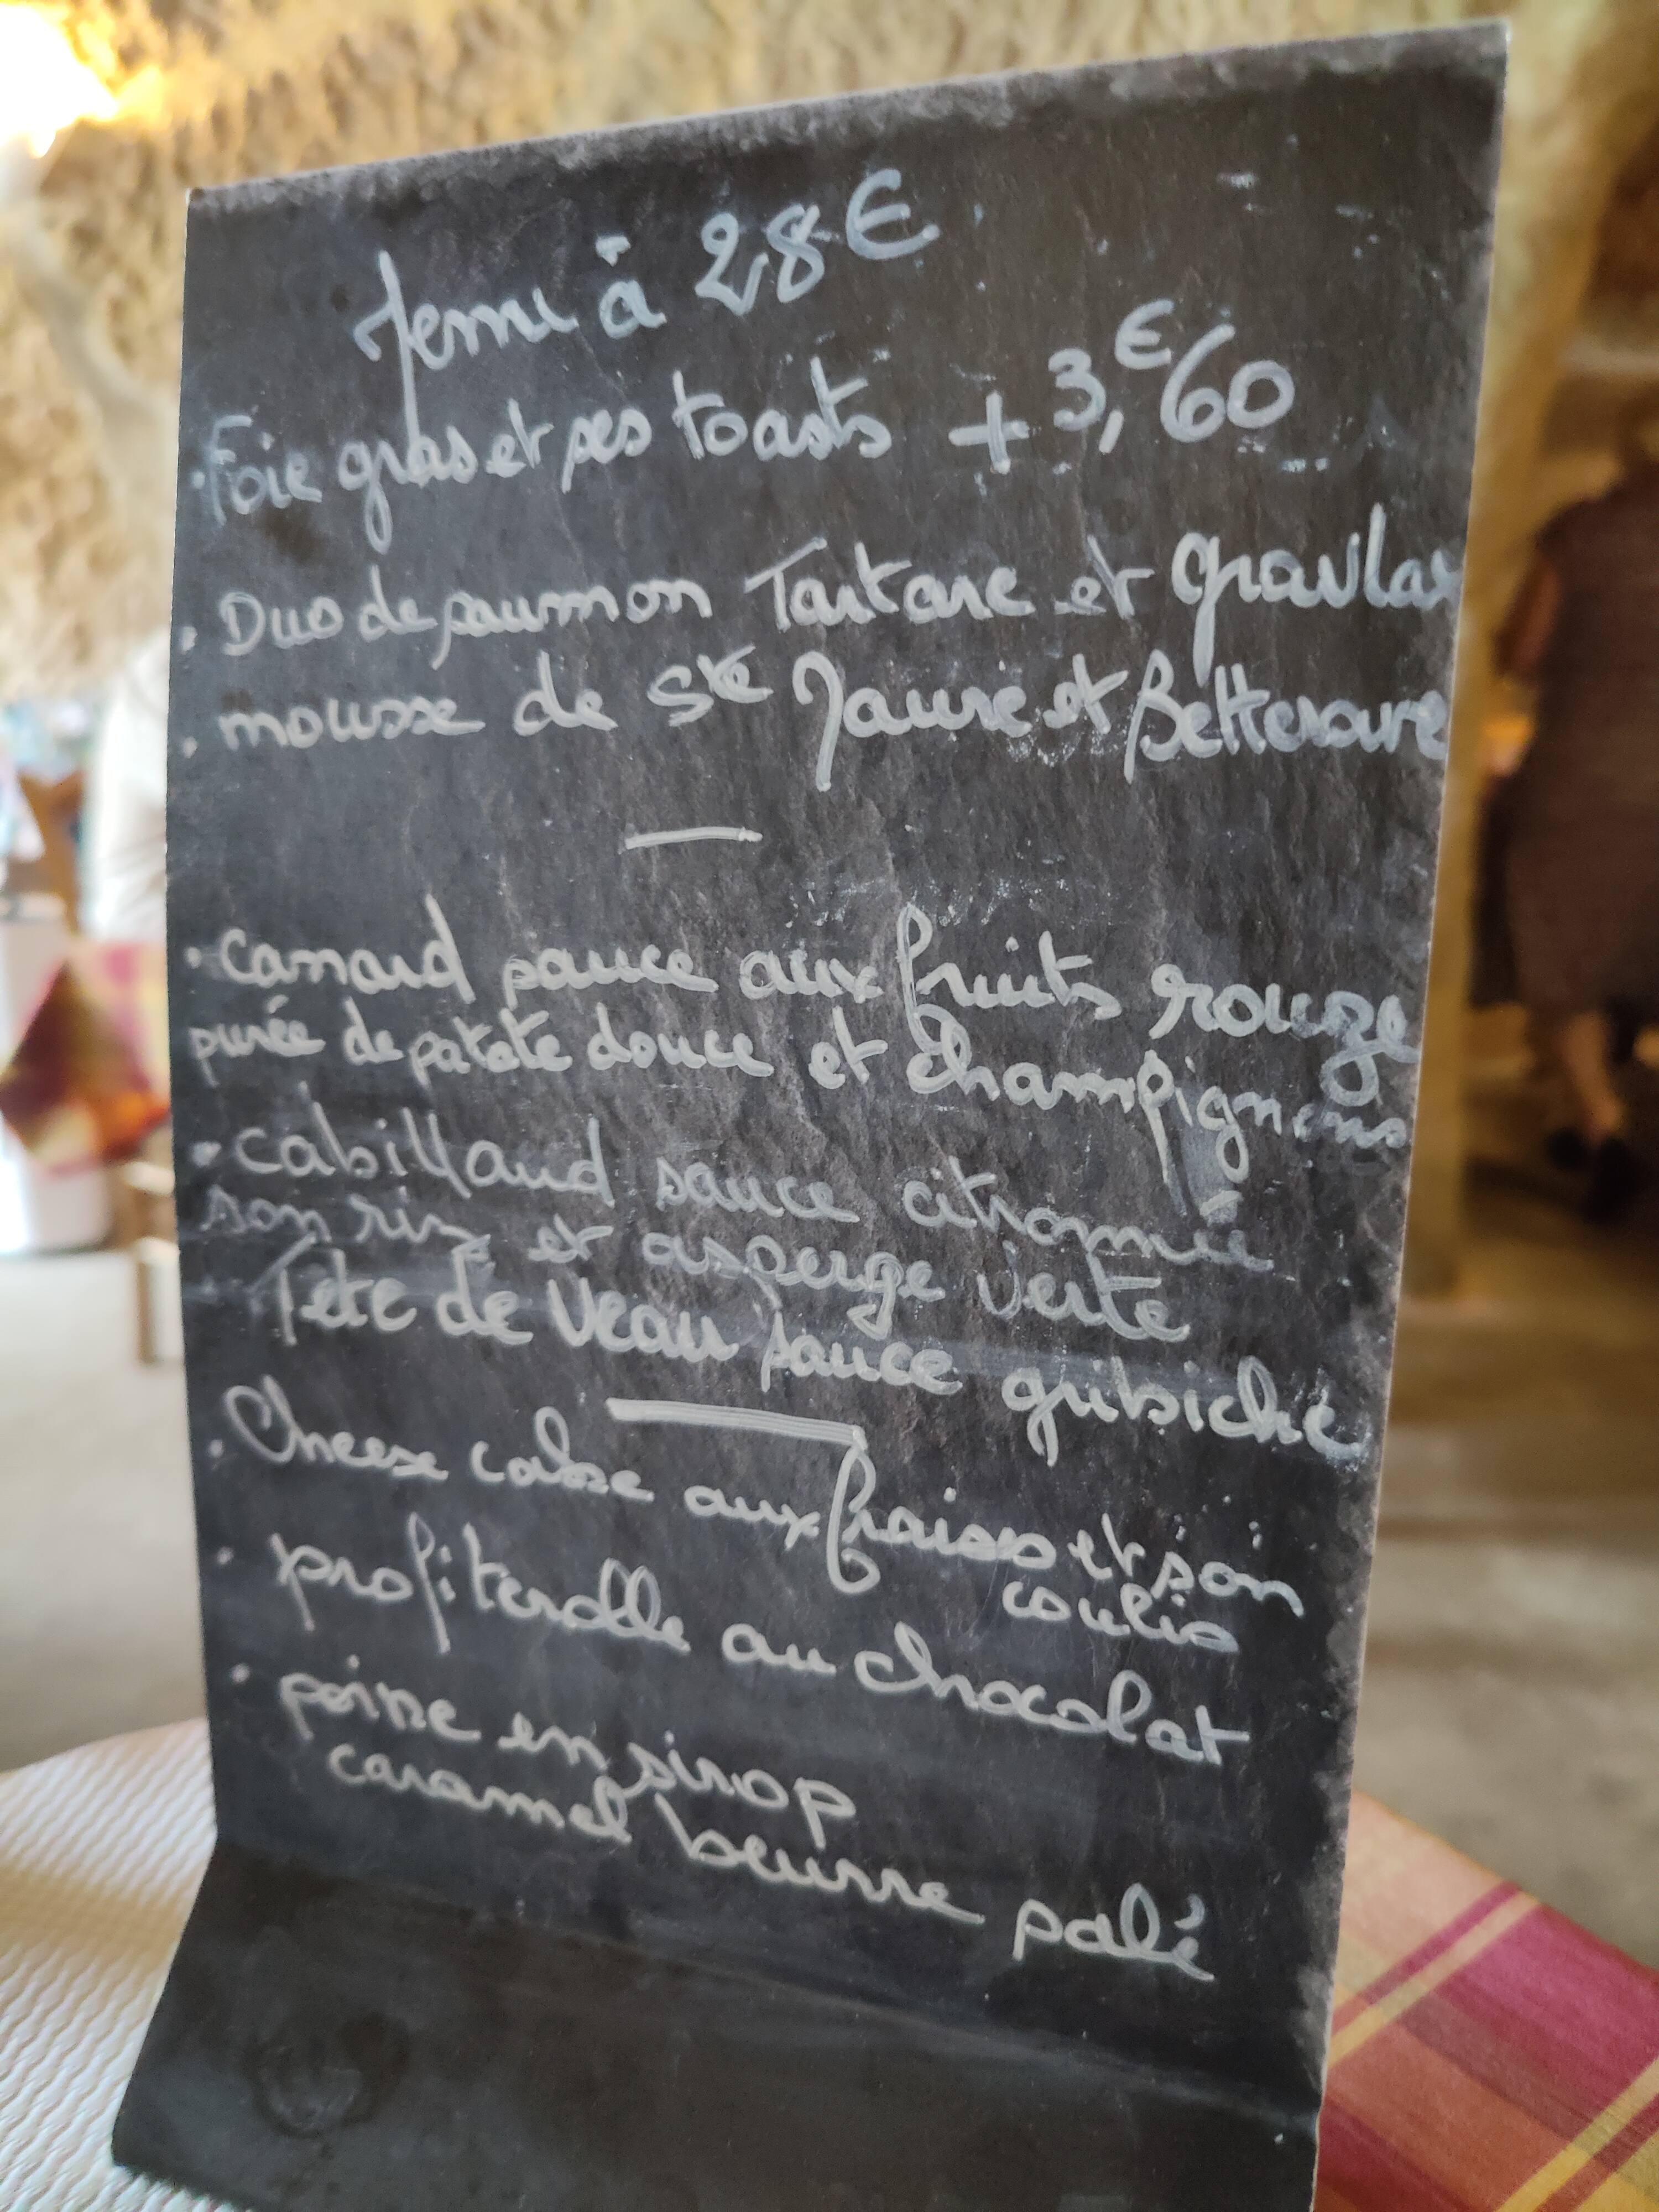 Menu à 28€
. Foie gras et ses toasts + 3,€60
. Duo de saumon Tartare et gravlax
. mousse de Ste Maure et Betterave
. canard sauce aux fruits rouge
purée de patate douce et champignons
. cabillaud sauce citronnée
son riz et asperge verte
Tête de Veau sauce gribiche
. Cheese cake aux fraises et son
coulis
. profiterolle au chocolat
. poire en sirop
caramel beurre salé